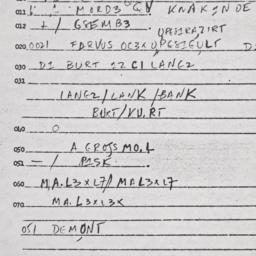 011 MORD3 KNAKINDE
012 +/ GSEMB3 UPSIRAZIRT
020 0021 FARVUS OC3X UPGSIGULT D
030 DI BURT 12 CI LANG2
031
LANG2/LANK/BANK
BURT/VU.RT
040 O
050 A GROSS MO.L
051 =/ PISK
060 M,A.L3XL7// MAL3XL7
070 MA.L3XL3X
051 DEMONT